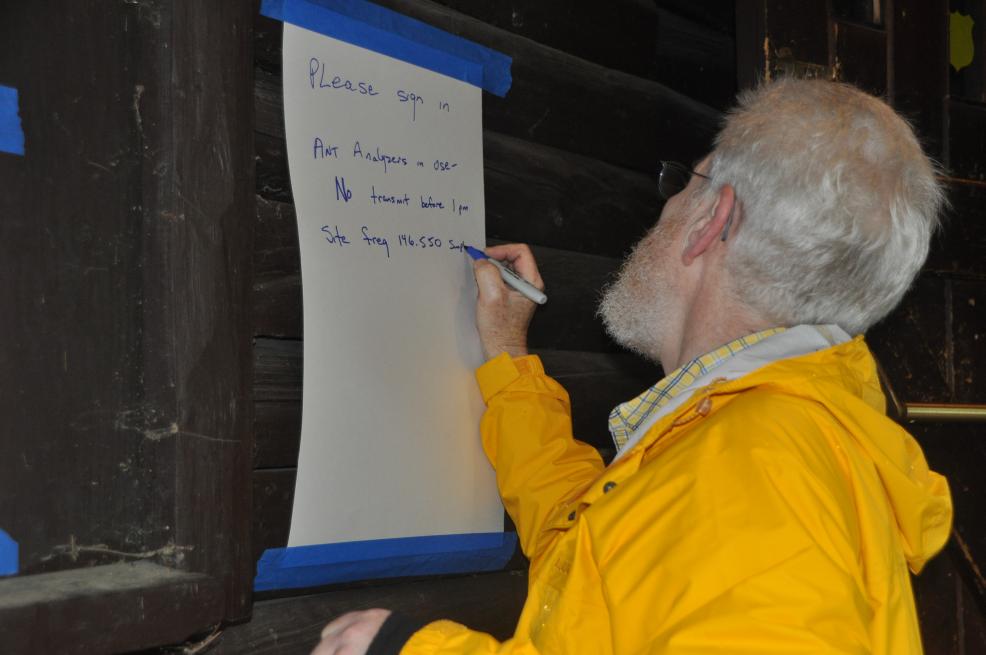 PLease sign in
ANT Analyzers in use-
No transmit before 1 pm
Site freq 146.550